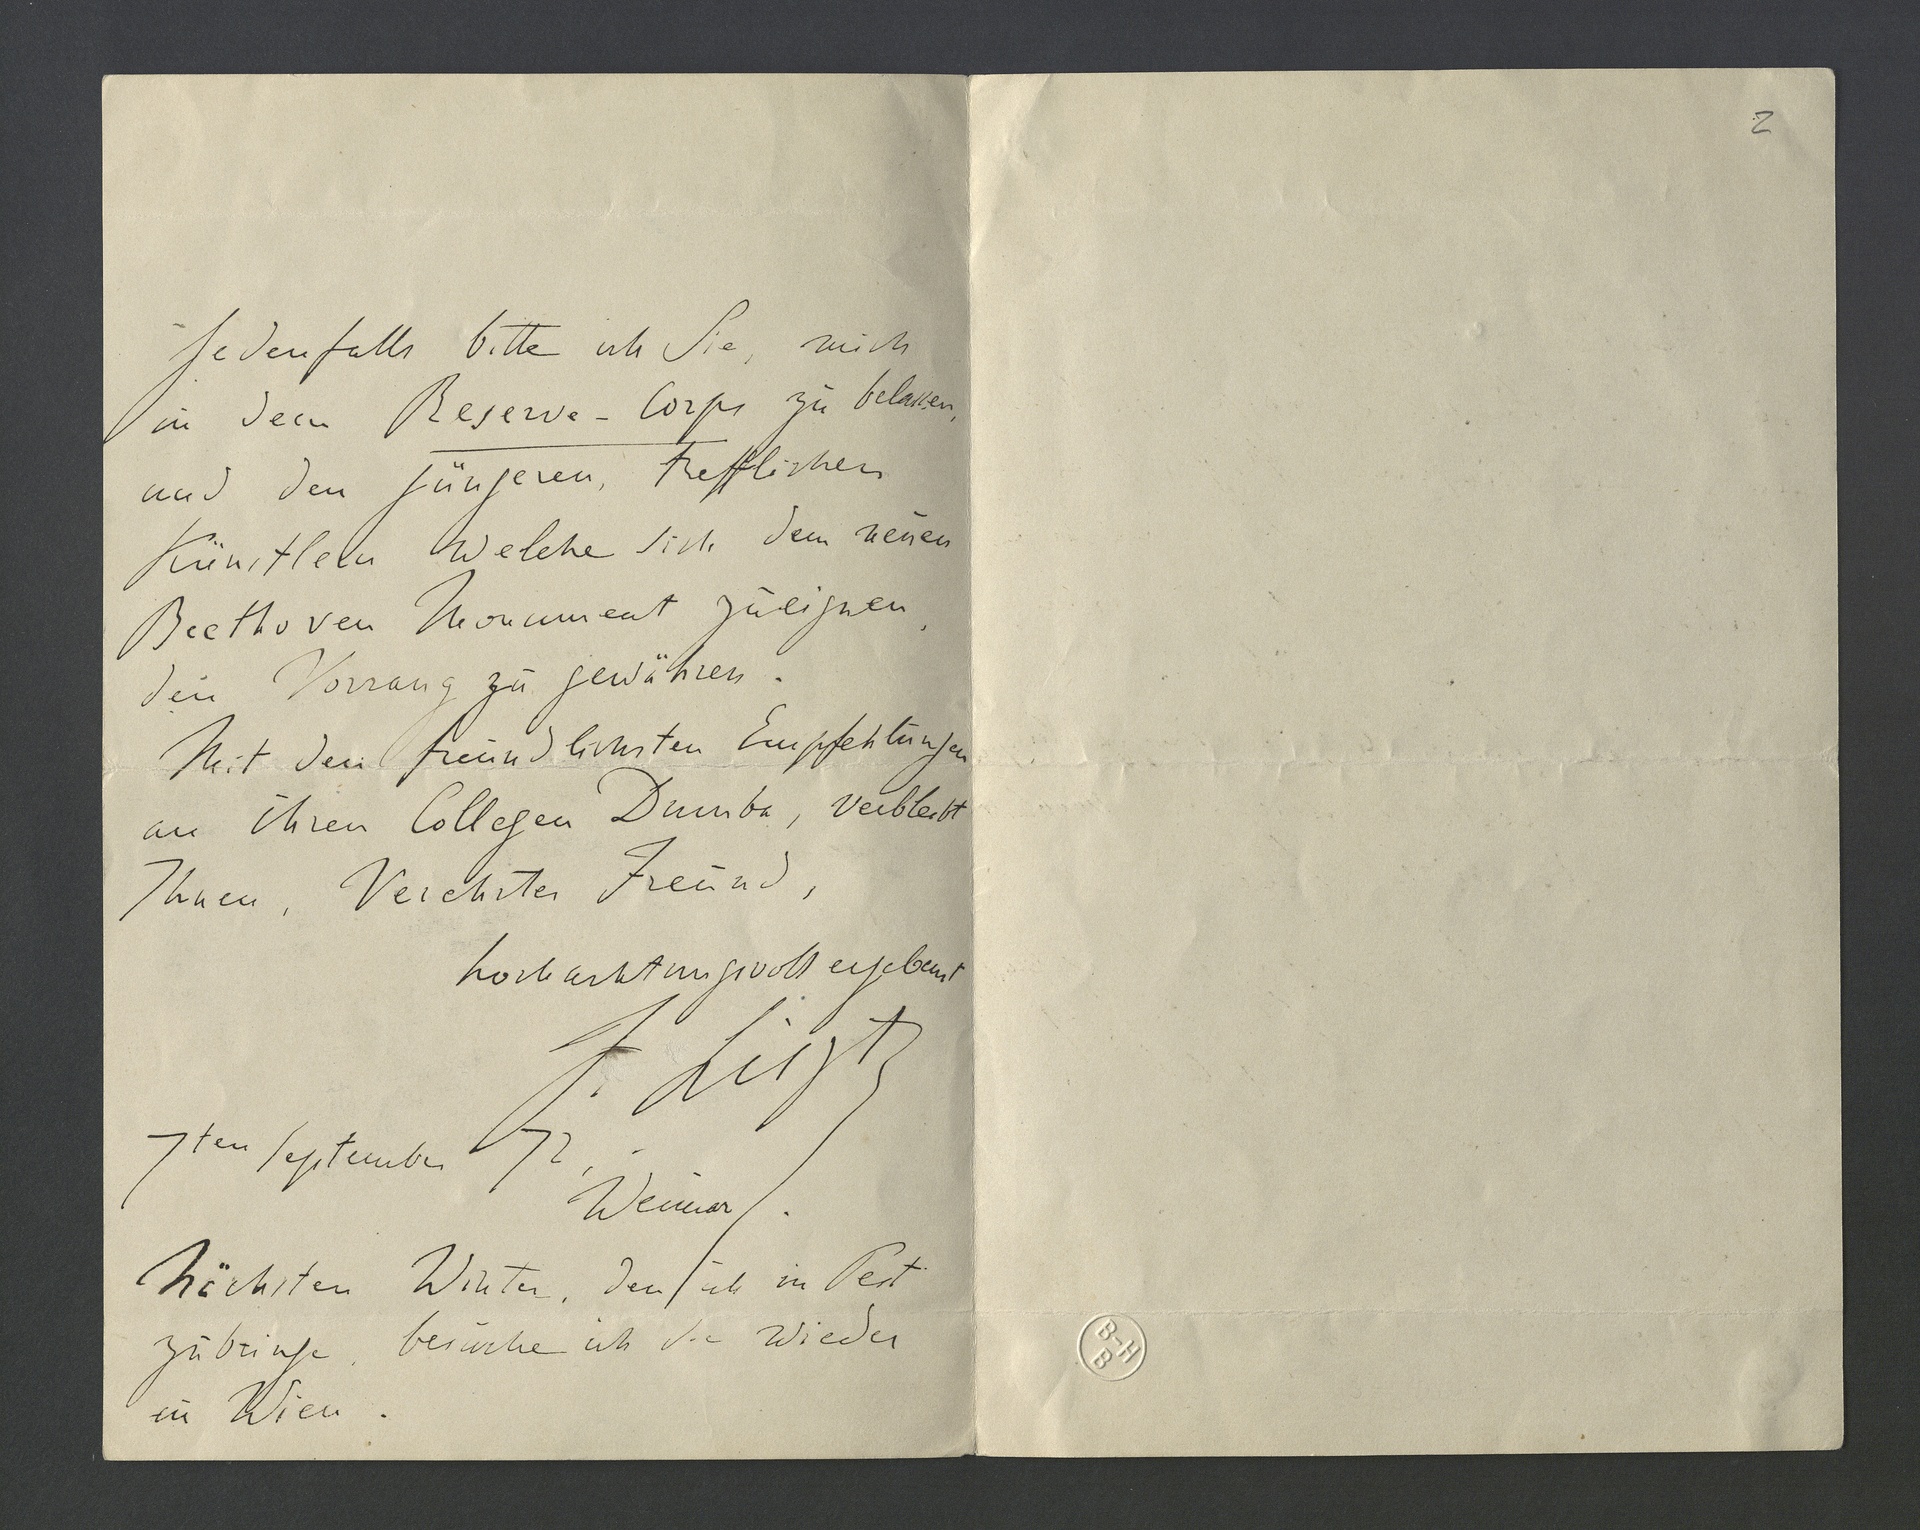 Jedenfalls bitte ich Sie, mich
in dem Reserve-Corps zu belassen,
und den jüngeren, trefflichen
Künstlern welche sich dem neuen
Beethoven Monument zueignen,
den Vorrang zu gewähren.
Mit den freundlichsten Empfehlungen
an ihren Collegen Dumba, verbleibt
Ihnen, Verehrter Freund,
hochachtungsvoll ergebenst
F. Liszt
7ten September 72,-
Weimar.
Nächsten Winter, den ich in Pest
zubringe, besuche ich Sie wieder
in Wien.
2
B-H
B